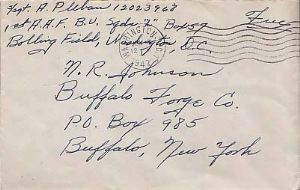 Sgt A. Pleban 12023968
1st A.A.F. B.U. Sqdn "2" Box 59
Bolling Field, Washington D.C.
Free
WASHINGTON
1947
N. R. Johnson
Buffalo Forge Co.
P.O. Box 985
Buffalo, New York